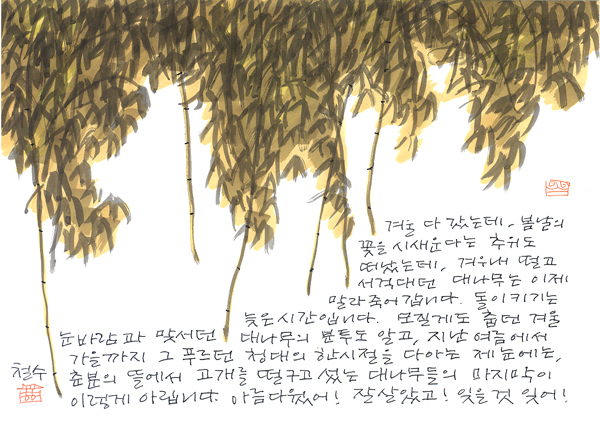 겨울 다 갔는데, 봄날의
꽃을 시새운다는 추위도
떠났는데, 겨우내 떨고
서걱대던 대나무는 이제
말라죽어갑니다. 돌이키기는
늦은 시간입니다. 모질게도 춥던 겨울
눈바람과 맞서던 대나무의 분투도 알고, 지난 여름에서
가을까지 그 푸르던 청대의 한시절을 다 아는 제 눈에는,
춘분의 뜰에서 고개를 떨구고 섰는 대나무들의 마지막이
이렇게 아립니다. 아름다웠어! 잘 살았고! 잊을 것 잊어!
철수